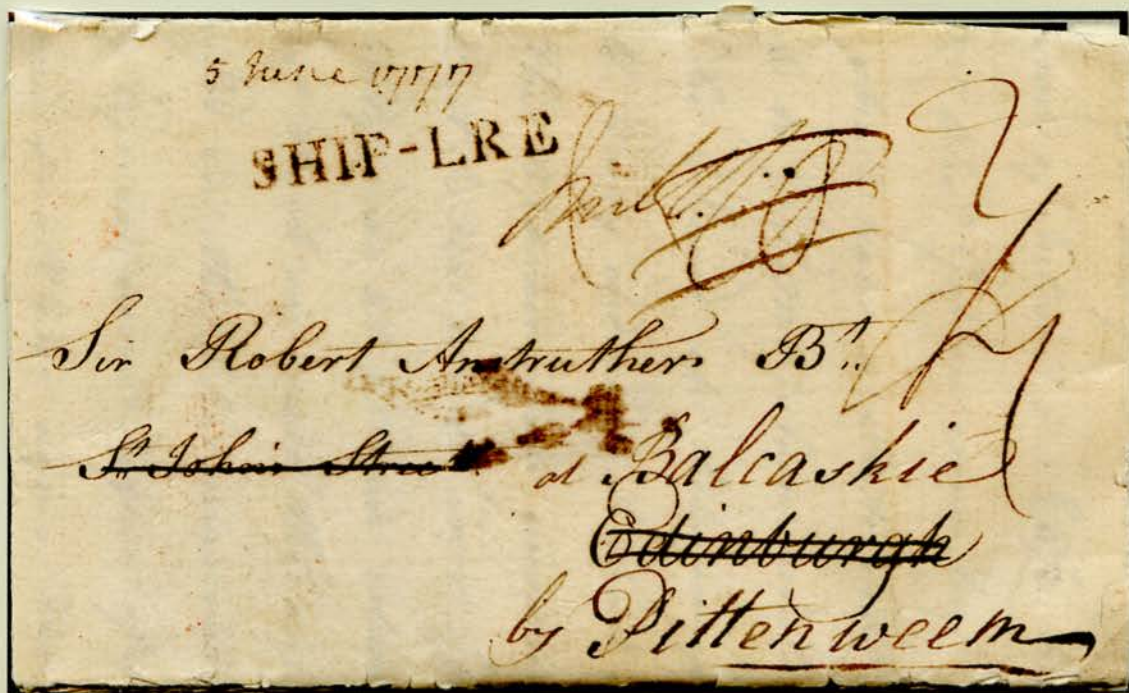 5 June 1777
SHIP-LRE
Sir Robert Anstruther Bt.
St Johns Street at Balcaskie
Edinburgh
by Pittenweem